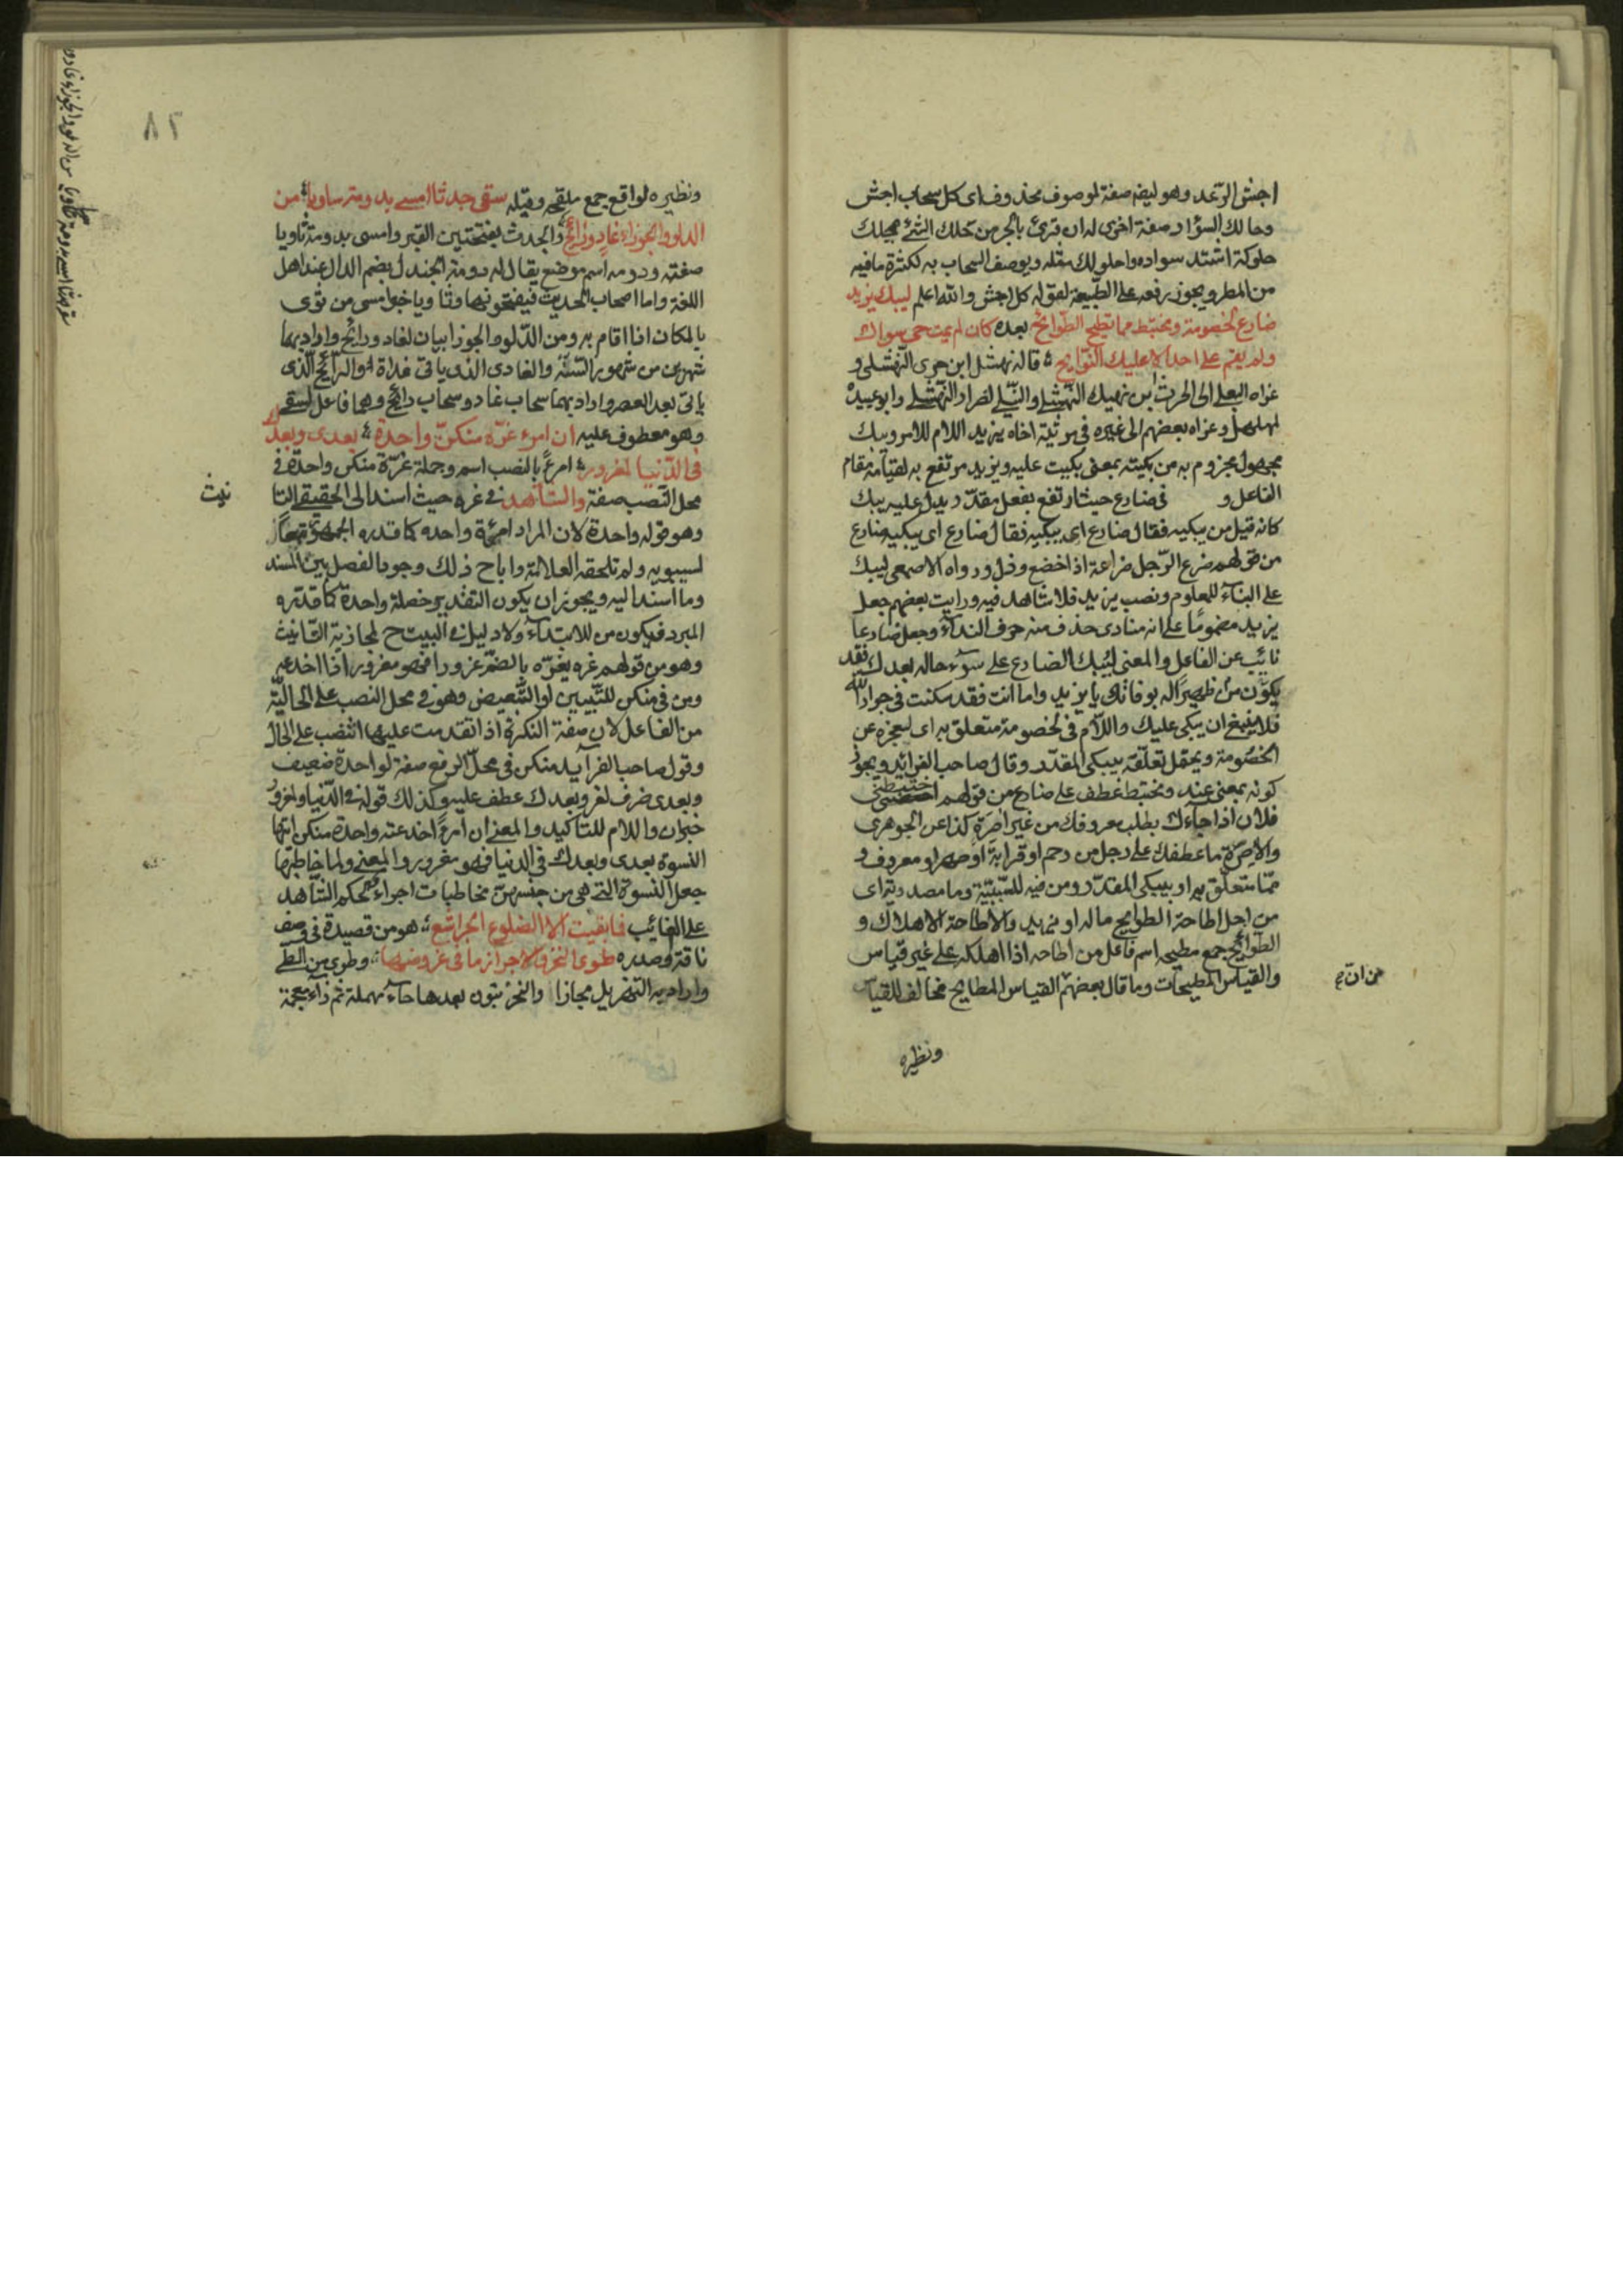 اجش الرعد وهو ليضه صفة لموصوف محذوف اى كل سحاب اجش
وحالك السواد صفة اخرى له ان قرئ بالجر من حلك الشئ يحلك
حلوكة اشتد سواده واحلولك مثله ويوصف السحاب به لكثرة مافيه
من المطر ويجوز رفعه على الطبيعة لقوله كل اجش والله اعلم ليبك يزيد
ضارع لخصومة ومختبط مما تطيح الطوائح بعده كان لم يمت حى سواك
ولم يقم على احد الا عليك النوايح قاله نهشل ابن حرى النهشلى و
عزاه البعلى الى الحرث بن نهيك النهشلى والنيلى لضرار النهشلى وابو عبيدة
لمهلهل وعزاه بعضهم الى غيره فى مرثية اخاه يزيد اللام للامر ويبك
مجهول مجزوم به من بكيته بمعنى بكيت عليه ويزيد مرتفع به لقيامه مقام
الفاعل و فى ضارع حيث ارتفع بفعل مقدر ويدل عليه يبك
كانه قيل من يبكيه فقال ضارع اى يبكيه فقال ضارع اى يبكيه ضارع
من قولهم ضرع الرجل ضراعة اذا خضع وذل ورواه الاصمعى ليبك
على البناء للمعلوم ونصب يزيد فلا شاهد فيه ورايت بعضهم جعل
يزيد مضموما على انه منادى حذف منه حرف النداء وجعل ضارعا
نائب عن الفاعل والمعنى ليبك الضارع على سوء حاله بعدك لفقد
يكون من ظهيرا له بوفاتك يا يزيد واما انت فقد سكنت فى جوار الله
فلا ينبغى ان يبكى عليك واللام فى لخصومة متعلق به اى لعجزه عن
الخصومة ويحتمل تعلقه بيبكى المقدر وقال صاحب الفرائد ويجوز
كونه بمعنى عند ومختبط عطف على ضارع من قولهم اختبطنى
فلان اذا جاءك يطلب معروفك من غير اصرة كذا عن الجوهرى
والاصرة ما عطفك على رجل من رحم او قرابة او صهر او معروف و
مما متعلق به او بيبكى المقدر ومن فيه للسببية وما مصدرية اى
من اجل اطاحة الطوايح ماله او يزيد والاطاحة الاهلاك و
الطوائح جمع مطيحه اسم فاعل من اطاحه اذا اهلكه على غير قياس
والقياس المطيحات وما قال بعضهم القياس المطايح مخالف للقياس
ونظيره
٨٢
ونظيره لواقع جمع ملقحه وقيله سقى جدثا امسى بدومة ساويا من
الدلو والجوزاء غاد ورائح والجدث بفتحتين القبر وامسى بدومة ثاويا
صفته ودومه اسم موضع يقال له دومة الجندل بضم الدال عند اهل
اللغة واما اصحاب الحديث فيفتحونها وثاويا خبر امسى من ثوى
بالمكان اذا اقام به ومن الدلو والجوزا بيان لغاد ورائح واراد بهما
شهرين من شهور السنة والغادى الذى ياتى غداة والرائح الذى
ياتى بعد العصر واراد بهما سحاب غاد وسحاب رائح وهما فاعل لسقى
وهو معطوف عليه ان امرء غره منكن واحدة بعدى وبعدك
فى الدنيا لمغرور امرءا بالنصب اسم وجملة غرة منكن واحدة فى
محل النصب صفة والشاهد فى غره حيث اسند الى الحقيقى التا
نيث
وهو قوله واحدة لان المراد امرأة واحده كما قدره الجمهور تبعا
لسيبويه ولم تلحقه العلامة واباح ذلك وجود الفصل بين المسند
وما اسند اليه ويجوز ان يكون التقدير خصلة واحدة كما قدره
المبرد فيكون من للابتداء ولا دليل فى البيت ح لمجازية التانيث
وهو من قولهم غره يغره بالضم غرورا فهو مغرور اذا اخدعه
ومن فى منكن للتبيين او التبعيض وهو فى محل النصب على الحالية
من الفاعل لان صفة النكرة اذا تقدمت عليها انتصب على الحال
وقول صاحب الفرآيد منكن فى محل الرفع صفة لواحدة ضعيف
وبعدى ظرف لغر وبعدك عطف عليه وكذلك قوله فى الدنيا ولمغرور
خبران واللام للتاكيد والمعنى ان امرءا اخدعته واحدة منكن ايتها
النسوة بعدى وبعدك فى الدنيا فهو مغرور والمعنى ولما خاطبها
جعل النسوة التى هى من جنسهن مخاطبات اجراء لحكم الشاهد
على الغائب فما بقيت الا الضلوع الجراشع هو من قصيدة فى وصف
ناقة وصدره طوى النحز والاجراز ما فى غروضها وطوى من الطى
واراد به التهزيل مجازا والنحز بنون بعدها حاء مهملة ثم زاء معجمة